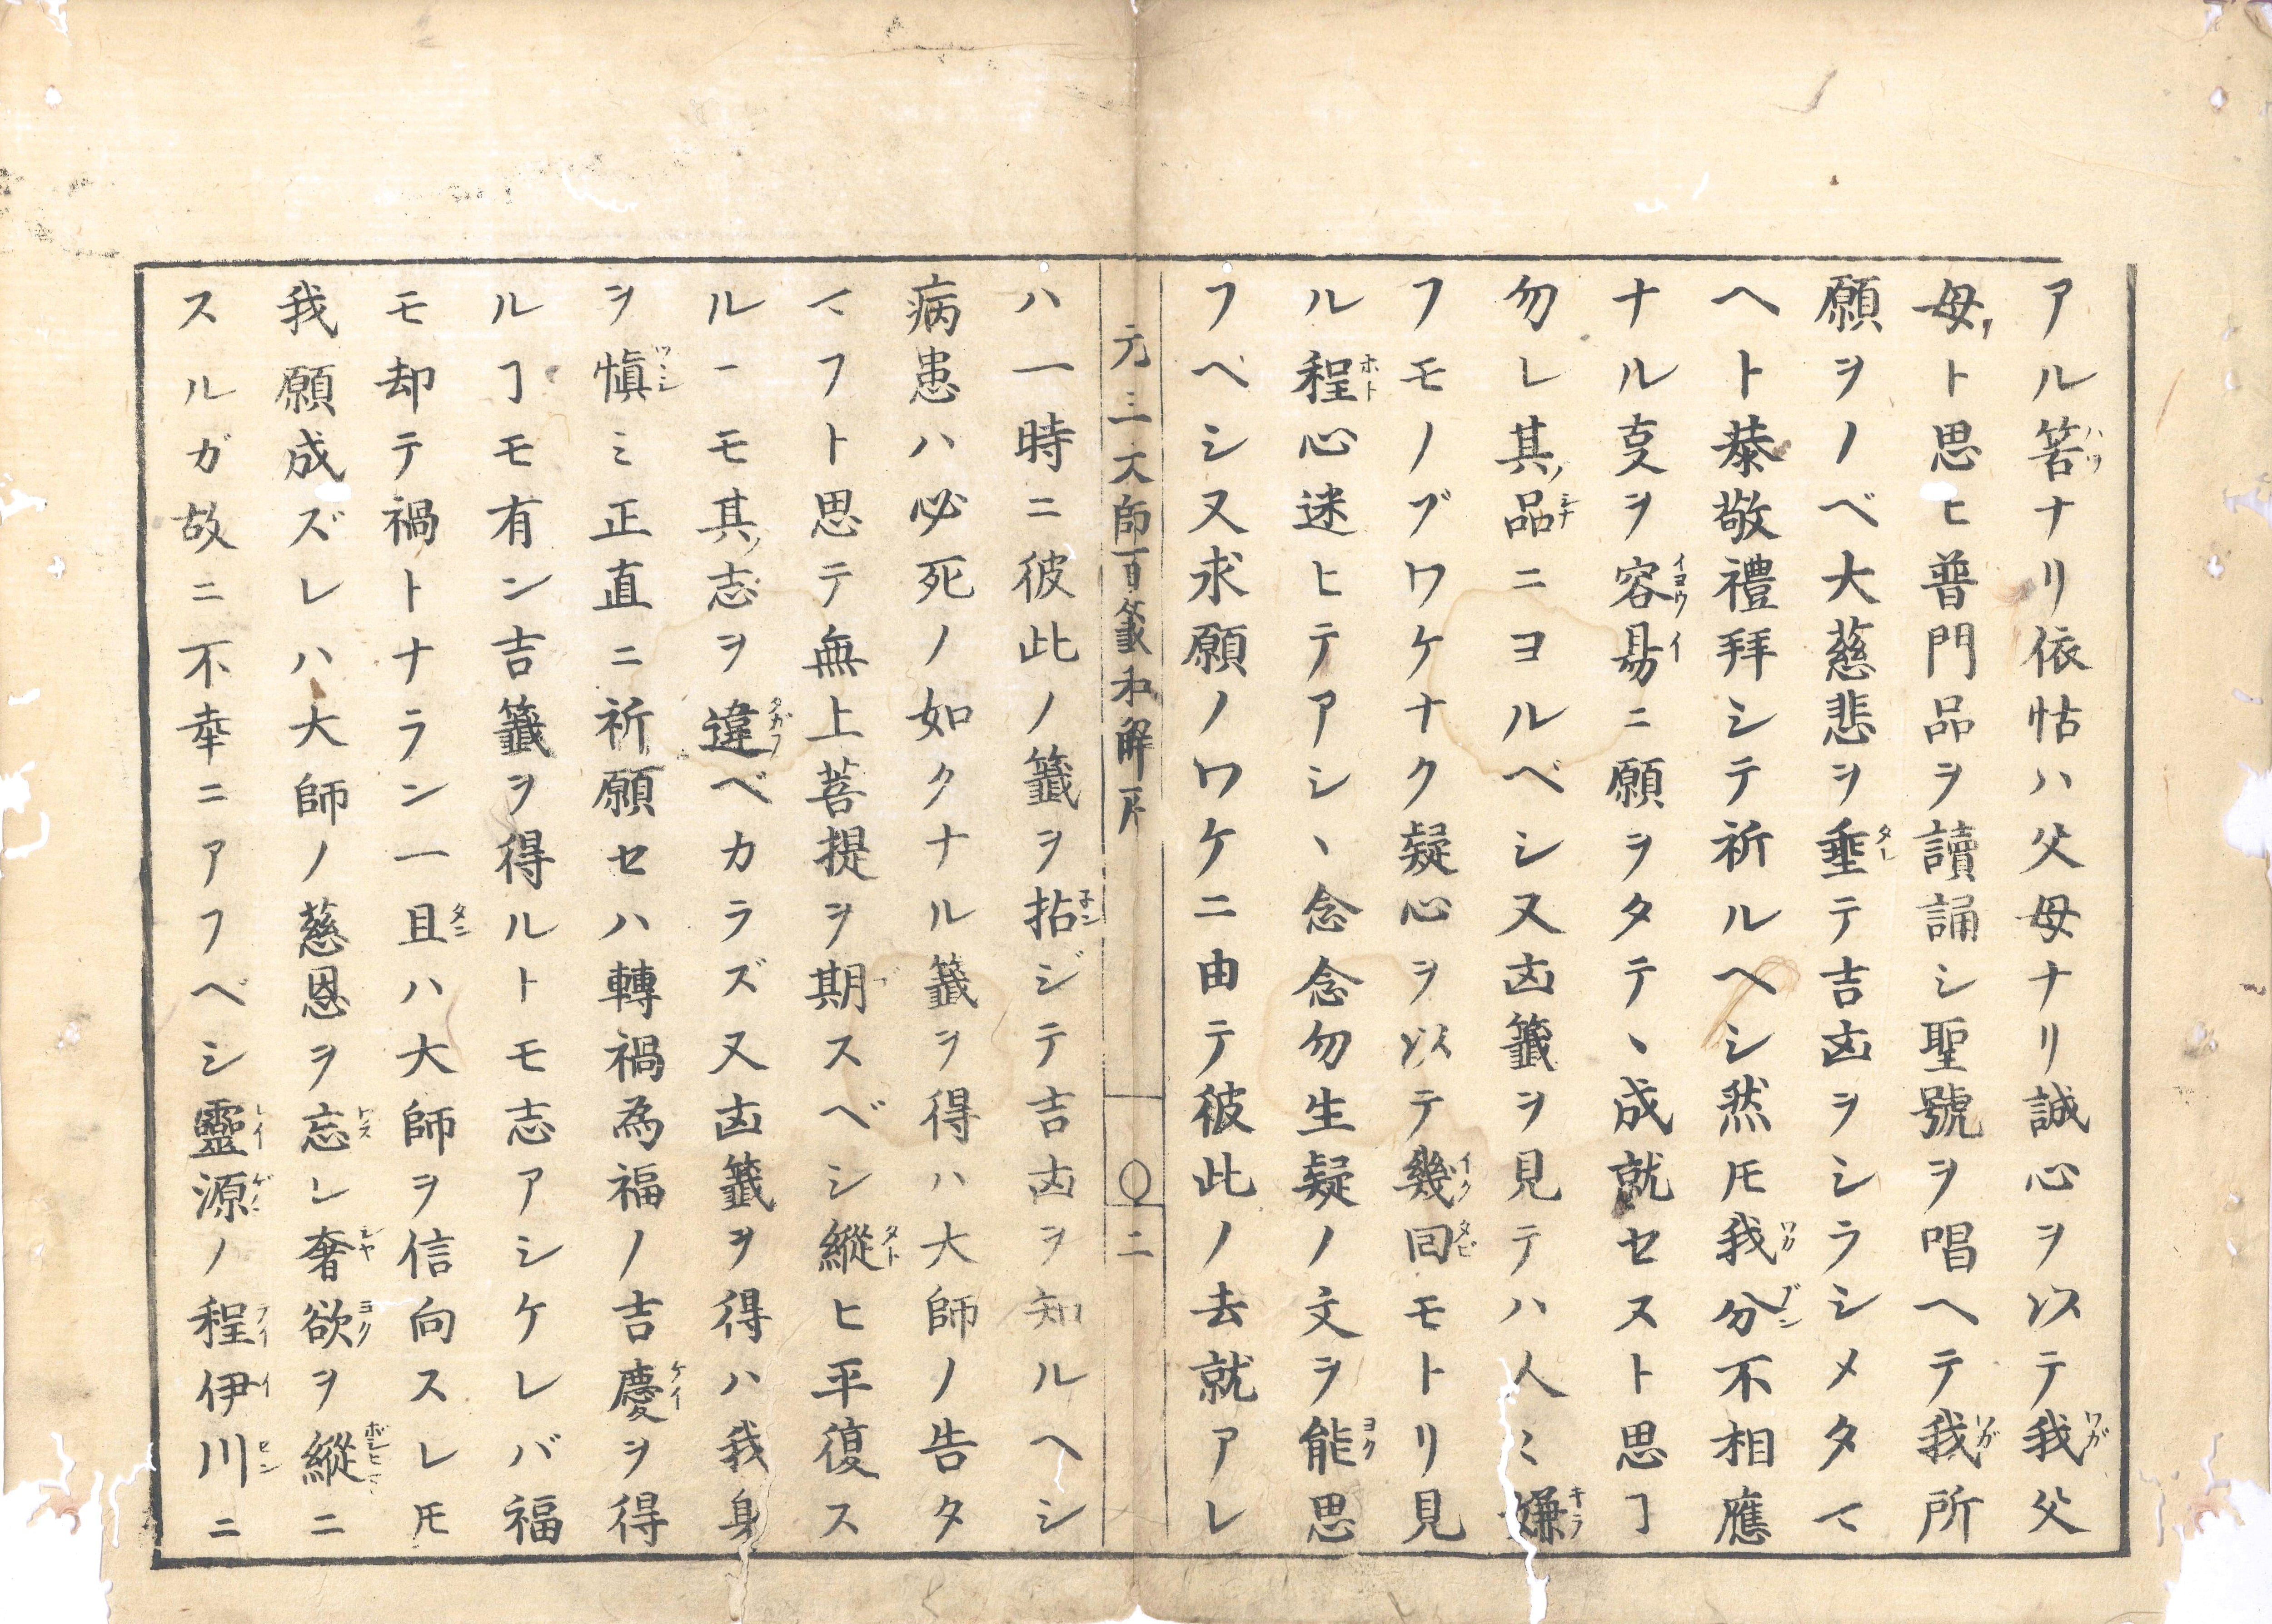 アル筈ナリ依怙ハ父母ナリ誠心ヲ以テ我父
母ト思ヒ普門品ヲ讀誦シ聖號ヲ唱ヘテ我所
願ヲノベ大慈悲ヲ垂テ吉凶ヲシラシメタマ
ヘト恭敬禮拜シテ祈ルヘシ然𪜈我分不相應
ナル叓ヲ容易ニ願ヲタテヽ成就セスト思ヿ
勿レ其品ニヨルベシ又凶籤ヲ見テハ人ミ嫌
フモノゾワケナク疑心ヲ以テ幾囘モトリ見
ル程心迷ヒテアシヽ念念勿生疑ノ文ヲ能思
フベシ又求願ノワケニ由テ彼此ノ去就アレ
元三大師百籤和解序
〇二
ハ一時ニ彼此ノ籤ヲ拈ジテ吉凶ヲ知ルヘシ
病患ハ必死ノ如クナル籤ヲ得ハ大師ノ告タ
マフト思テ無上菩提ヲ期スベシ縱ヒ平復ス
ルーモ其志ヲ違ベカラズ又凶籤ヲ得ハ我身
ヲ愼ミ正直ニ祈願セハ轉禍為福ノ吉慶ヲ得
ルヿモ有ン吉籤ヲ得ルトモ志アシケレバ福
モ却テ禍トナラン一旦ハ大師ヲ信向スレ𪜈
我願成ズレハ大師ノ慈恩ヲ忘レ奢欲ヲ縱ニ
スルガ故ニ不幸ニアフベシ靈源ノ程伊川ニ